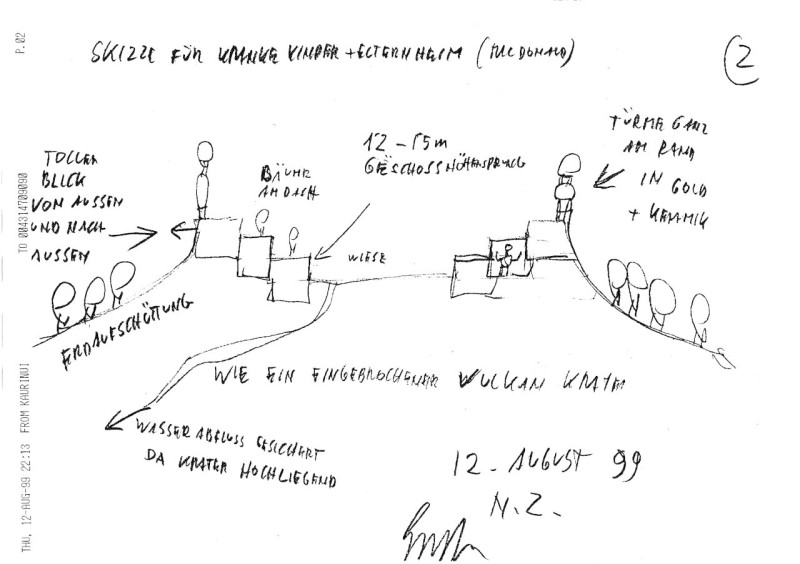 P.02
SKIZZE FÜR KRANKE KINDER + ELTERNHEIM (MCDONALD)
2
TOLLER
BLICK
VON AUSSEN
UND NACH
AUSSEN
BÄUME
AM DACH
12 – 15 m
GESCHOSSHÖHENSPRUNG
TÜRME GANZ
AM RAND
IN GOLD
+ KERAMIK
WIESE
ERDAUFSCHÜTTUNG
WIE EIN EINGEBROCHENER VULKAN KRATER
WASSERABFLUSS GESICHERT
DA KRATER HOCHLIEGEND
12. AUGUST 99
N.Z.
TO 004314709090
THU, 12-AUG-99 22:13 FROM KAURINUI